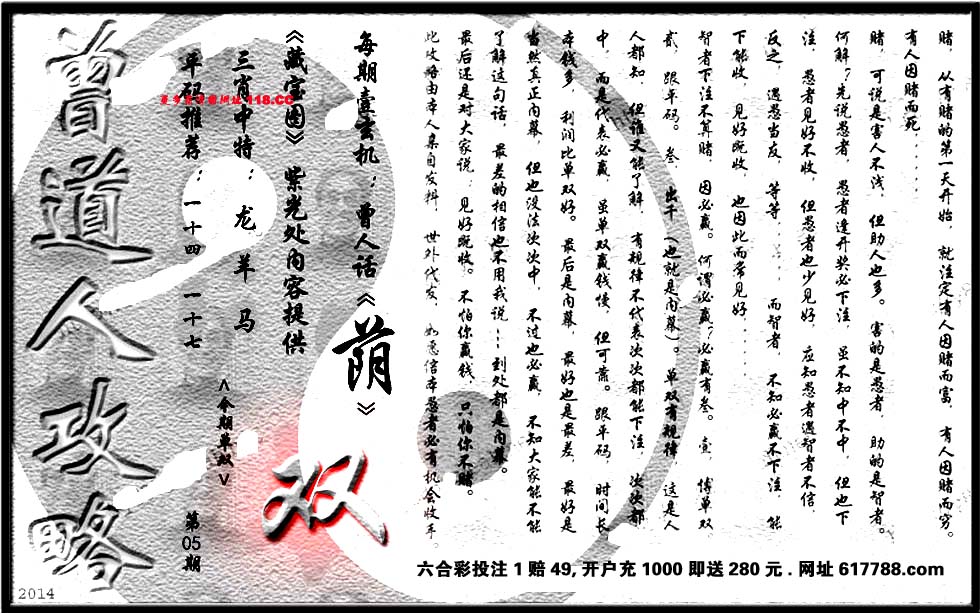 赌，从有赌的第一天开始，就注定有人因赌而富，有人因赌而穷。
有人因赌而死……
赌，可说是害人不浅，但助人也多。害的是愚者，助的是智者。
何解？先说愚者，愚者逢开奖必下注，虽不知中不中，但也下
注，愚者见好不收，但愚者也少见好，应知愚者遇智者不信，
反之，遇愚当友，等等……而智者，不知必赢不下注，能
下能收，见好既收，也因此而常见好……
智者下注不算赌，因必赢。何谓必赢？必赢有叁。壹，博单双
贰，跟单码。叁，出千（也就是内幕）。单双有规律，这是人
人都知，但谁又能了解，有规律不代表次次都能下注，次次都
中，而是代表必赢，虽单双赢钱慢，但可靠。跟单码，时间长
本钱多，利润比单双好。最后是内幕，最好也是最差，最好是
当然真正内幕，但也没法次次中，不过也必赢，不知大家能不能
了解这句话，最差的相信也不用我说……到处都是内幕。
最后还是对大家说：见好既收。不怕你赢钱，只怕你不赌。
此攻略由本人亲自发料，世外代友，如愿信本愚者必有机会收手。
每期壹玄机：曾人话《荫》
《藏宝图》紫光处内容提供
三肖中特：龙 羊 马
单码推荐：一十四 一十七
118.CC
<今期单双>
双
第05期
曾道人攻略
2014
六合彩投注1赔49,开户充1000即送280元.网址617788.com